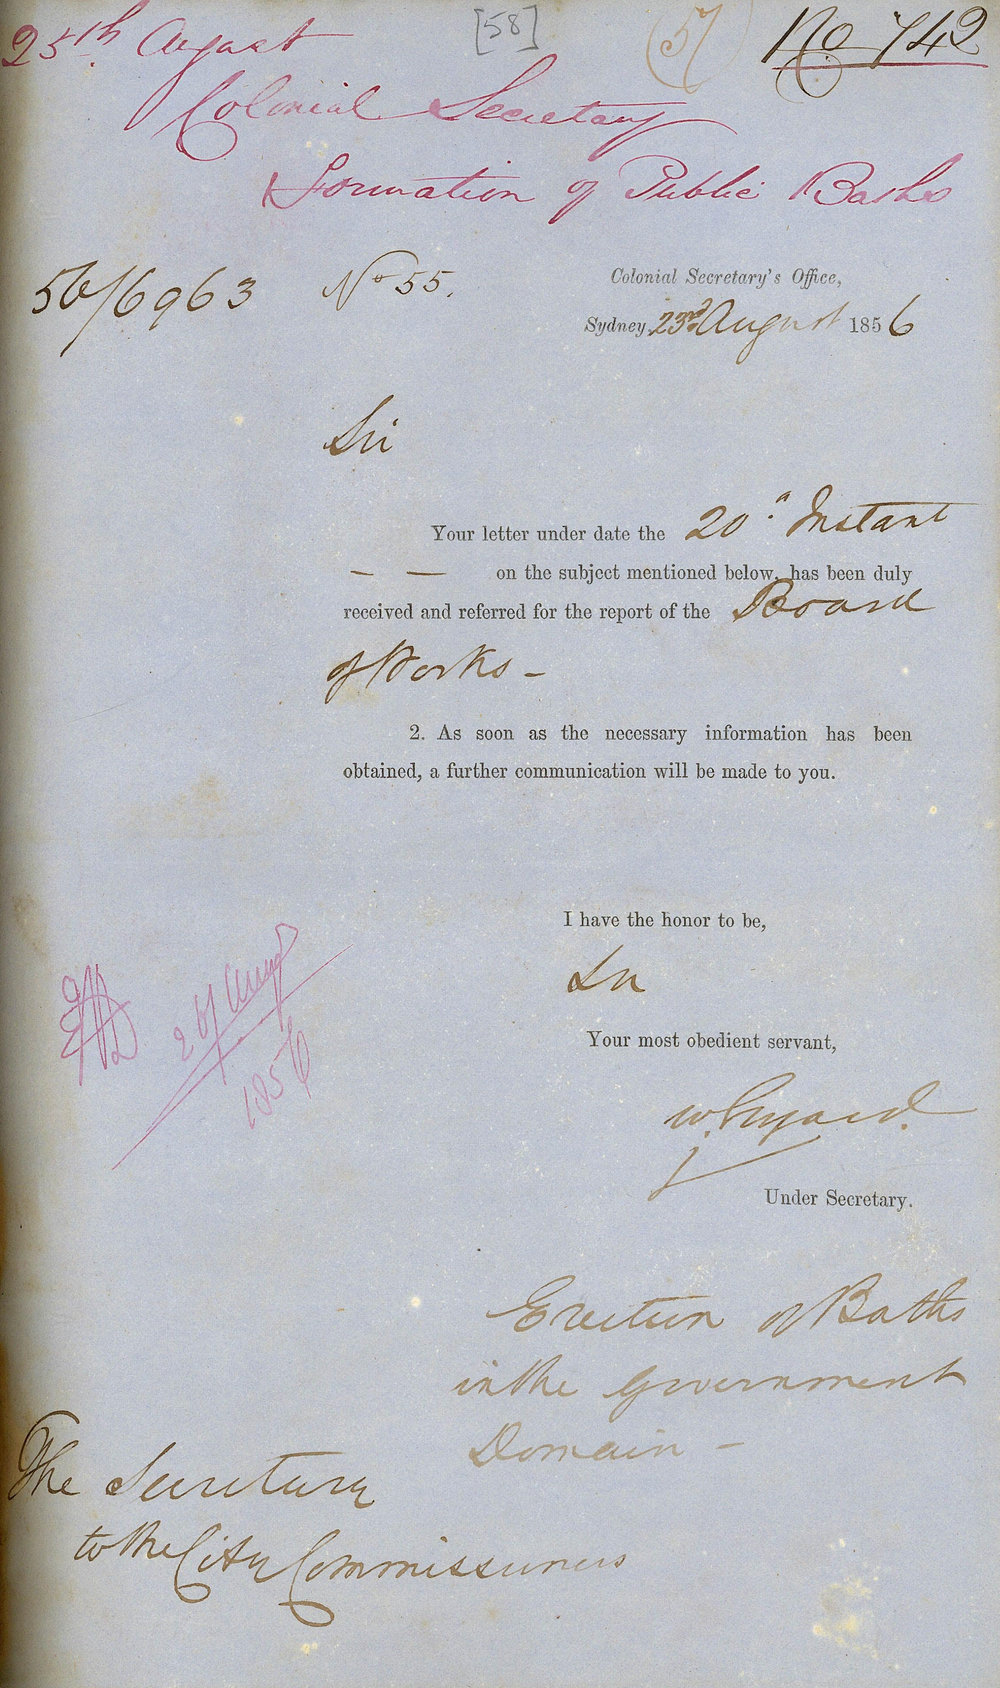 25th August
[58]
57
No 742
Colonial Secretary
Formation of Public Baths
56/6963
No 55.
Colonial Secretary's Office,
Sydney, 23rd August 1856
Sir
Your letter under date the 20th Instant
— — on the subject mentioned below, has been duly
received and referred for the report of the Board
of Works –
2. As soon as the necessary information has been
obtained, a further communication will be made to you.
I have the honor to be,
Sir
Your most obedient servant,
26 Augt
1856
W. Elyard.
Under Secretary.
Erection of Baths
in the Government
Domain –
The Secretary
to the City Commissioners